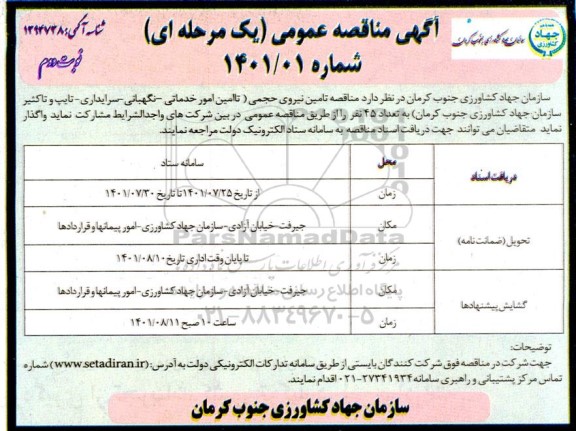 آگهی مناقصه عمومی (یک مرحله ای)
شماره ۱۴۰۱/۰۱
شناسه آگهی: ۱۳۹۴۷۳۸
نوبت دوم
جهاد کشاورزی
سازمان جهاد کشاورزی جنوب کرمان
سازمان جهاد کشاورزی جنوب کرمان در نظر دارد مناقصه تامین نیروی حجمی ( تاامین امور خدماتی -نگهبانی-سرایداری- تایپ و تاکثیر
سازمان جهاد کشاورزی جنوب کرمان) به تعداد ۴۵ نفر را از طریق مناقصه عمومی در بین شرکت های واجدالشرایط مشارکت نماید واگذار
نماید متقاضیان می توانند جهت دریافت اسناد مناقصه به سامانه ستاد الکترونیک دولت مراجعه نمایند.
دریافت اسناد
محل
سامانه ستاد
زمان
از تاریخ ۱۴۰۱/۰۷/۲۵ تا تاریخ ۱۴۰۱/۰۷/۳۰
تحویل (ضمانت نامه)
مکان
جیرفت-خیابان آزادی-سازمان جهاد کشاورزی-امور پیمانها و قراردادها
زمان
تا پایان وقت اداری تاریخ ۱۴۰۱/۰۸/۱۰
گشایش پیشنهادها
مکان
جیرفت-خیابان آزادی-سازمان جهاد کشاورزی-امور پیمانها و قراردادها
زمان
ساعت ۱۰ صبح ۱۴۰۱/۰۸/۱۱
ParsNamadData
۰۲۱-۸۸۳۴۹۶۷۰-۵
توضیحات:
جهت شرکت در مناقصه فوق شرکت کنندگان بایستی از طریق سامانه تدارکات الکترونیکی دولت به آدرس: (www.setadiran.ir) شماره
تماس مرکز پشتیبانی و راهبری سامانه ۲۷۳۴۱۹۳۴-۰۲۱ اقدام نمایند.
سازمان جهاد کشاورزی جنوب کرمان